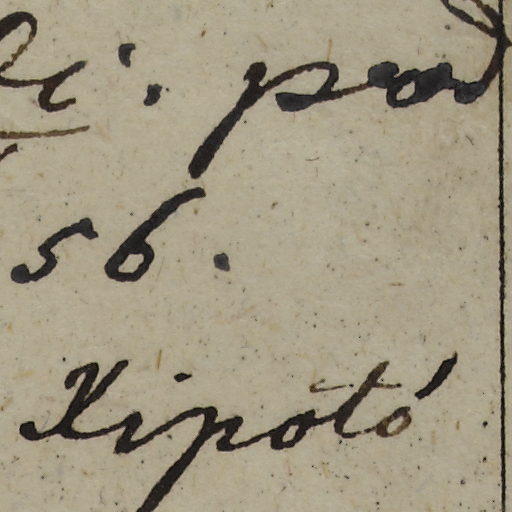 pod
56.
Xipotó